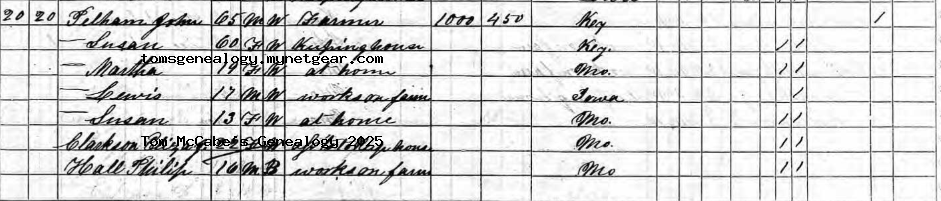 20 20 Pelham John 65 M W Farmer 1000 450 Key 1
— Susan 60 F W Keeping house Key. 1 1
tomsgenealogy.munetgear.com
— Martha 19 F W at home Mo. 1 1
— Lewis 17 M W works on farm Iowa 1 1
— Susan 13 F W at home Mo. 1 1
Tom McCabe's Genealogy 2025
Clarkson house Mo. 1 1
Hall Philip 16 M B works on farm Mo 1 1